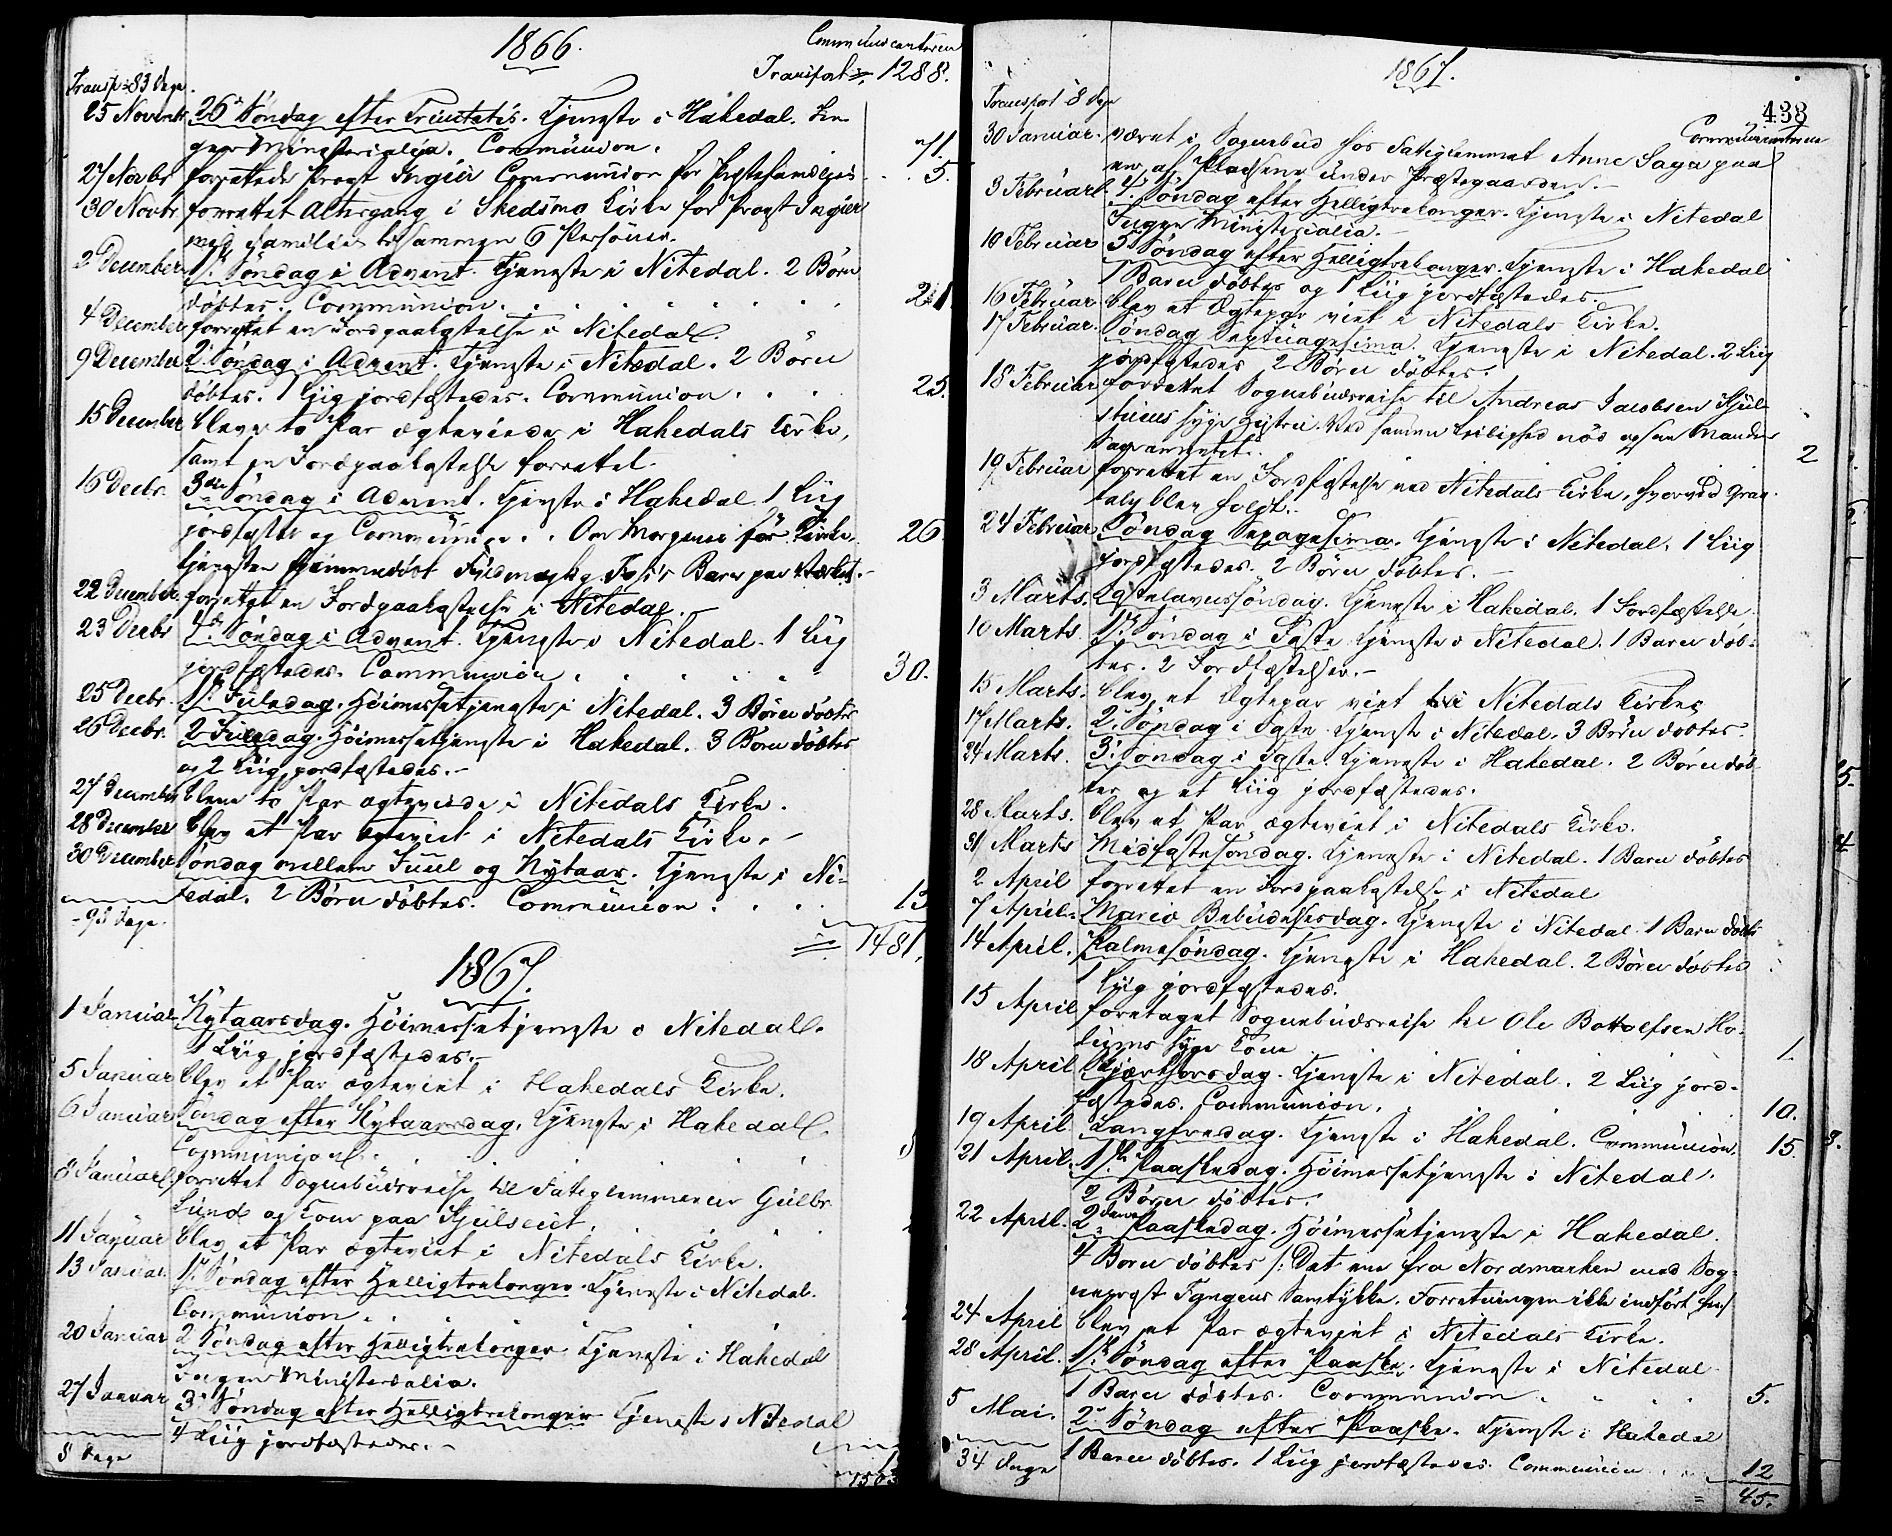 1866.
Communicantere
Transp. 83 Dage.
Transport 1288.
25 Novembr 26de Søndag efter Trinitatis. Tjeneste i Hakedal. In-
gen Ministerialia. Communion. 71.
27 Novbr forrettede Provst Ingier Communion for 5.
30 Novbr. forrettet Altergang i Skedsmo Kirke for Provst Ingier
med Familie tilsammen 6 Personer.
2 December 1ste Søndag i Advent. Tjeneste i Nitedal. 2 Børn
døbtes. Communion. 21
4 December forrettet en Jordpaakastelse i Nitedal.
9 December 2. Søndag i Advent. Tjeneste i Nitedal. 2 Børn
døbtes. 1 Liig jordfæstedes. Communion. 25.
15 December bleve to Par ægteviede i Hakedals Kirke,
samt en Jordpaakastelse forrettet.
16 Decbr. 3die Søndag i Advent. Tjeneste i Hakedal. 1 Liig
jordfæstet og Communion. Om Morgenen før Kirke- 26
tjenesten hjemmedøbt Fuldmægtig Barn paa Værket.
22 December forrettet en Jordpaakastelse i Nitedal.
23 Decbr 4de Søndag i Advent. Tjeneste i Nitedal. 1 Liig
jordfæstedes. Communion. 30.
25 Decbr. 1ste Juledag. Høimessetjeneste i Nitedal. 3 Børn døbtes
26 Decbr. 2 Juledag. Høimessetjeneste i Hakedal. 3 Børn døbtes
og 2 Liig jordfæstedes.
27 December bleve to Par ægteviede i Nitedals Kirke.
28 December blev et Par ægteviet i Nitedals Kirke.
30 December Søndag mellem Juul og Nytaar. Tjeneste i Ni-
tedal. 2 Børn døbtes. Communion. 13
Dage. 1481.
1867.
1 Januar Nytaarsdag. Høimessetjeneste i Nitedal.
1 Liig jordfæstedes.
5 Januar blev et Par ægteviet i Hakedals Kirke.
6 Januar Søndag efter Nytaarsdag. Tjeneste i Hakedal.
Communion.
8 Januar forrettet Sognebudsreise til Fateglemmerne Gulbr.
Lund og Kone paa
11 Januar blev et Par ægteviet i Nitedals Kirke.
13 Januar 1ste Søndag efter Helligtrekonger. Tjeneste i Nitedal.
Communion.
20 Januar 2 Søndag efter Helligtrekonger. Tjeneste i Hakedal
Ingen Ministerialia.
27 Januar 3die Søndag efter Helligtrekonger. Tjeneste i Nitedal
4 Liig jordfæstedes.
8 Dage
1867.
438
Transport 8 Dage
Communicantere
30 Januar. været i Sognebud hos Anne Saga paa
en af Pladsene under Præstegaarden.
3 Februar 4. Søndag efter Helligtrekonger. Tjeneste i Nitedal
Ingen Ministerialia.
10 Februar 5. Søndag efter Helligtrekonger. Tjeneste i Hakedal
1 Barn døbtes og 1 Liig jordfæstedes.
16 Februar blev et Ægtepar viet i Nitedals Kirke.
17 Februar. Søndag Septuagesima. Tjeneste i Nitedal. 2 Liig
jordfæstedes 2 Børn døbtes.
18 Februar forrettet Sognebudsreise til Andreas Jacobsen
syge Hustru. Ved samme Leilighed nød ogsaa Manden
Sacramentet. 2
19 Februar forrettet en Jordfæstelse ved Nitedals Kirke, hvorved Grav-
tale blev holdt.
24 Februar Søndag Sexagesima. Tjeneste i Nitedal. 1 Liig
jordfæstedes. 2 Børn døbtes.
3 Marts. Fastelavnssøndag. Tjeneste i Hakedal. 1 Jordfæstelse.
10 Marts. 1ste Søndag i Faste. Tjeneste i Nitedal. 1 Barn døb-
tes. 2 Jordfæstelser.
15 Marts. blev et Ægtepar viet i Nitedals Kirke
17 Marts. 2. Søndag i Faste. Tjeneste i Nitedal. 3 Børn døbtes.
24 Marts. 3. Søndag i Faste. Tjeneste i Hakedal. 2 Børn døb-
tes og et Liig jordfæstedes.
28 Marts. blev et Par ægteviet i Nitedals Kirke.
31 Marts Midfastesøndag. Tjeneste i Nitedal. 1 Barn døbtes
2 April forrettet en Jordpaakastelse i Nitedal
7 April. Mariæ Bebudelsesdag. Tjeneste i Nitedal 1 Barn døbt
14 April. Palmesøndag. Tjeneste i Hakedal. 2 Børn døbtes
1 Liig jordfæstedes.
15 April foretaget Sognebudsreise til Ole Bottolfsen
syge Kone 1.
18 April Skjærthorsdag. Tjeneste i Nitedal. 2 Liig jord-
fæstedes. Communion. 10.
19 April Langfredag. Tjeneste i Hakedal. Communion. 15.
21 April. 1ste Paaskedag. Høimessetjeneste i Nitedal.
2 Børn døbtes.
22 April. 2den Paaskedag. Høimessetjeneste i Hakedal.
4 Børn døbtes /: Det ene fra Nordmarken med Sog-
nepræst Samtykke. Forretningen ikke indført her/
24 April blev et Par ægteviet i Nitedals Kirke.
28 April. 1ste Søndag efter Paaske. Tjeneste i Nitedal
1 Barn døbtes. Communion. 5.
5 Mai. 2. Søndag efter Paaske. Tjeneste i Hakedal
1 Barn døbtes. 1 Liig jordfæstedes. Communion 12
34 Dage 45.